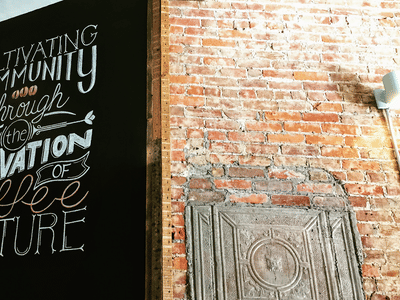 TIVATING
MMUNITY
through
the
VATION
OF
ffee
TURE